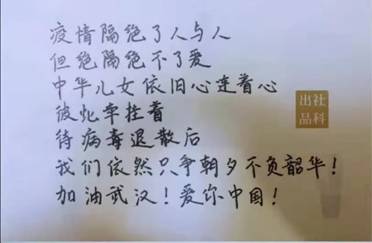 疫情隔绝了人与人
但绝隔绝不了爱
中华儿女依旧心连着心
彼此牵挂着
待病毒退散后
我们依然只争朝夕不负韶华！
加油武汉！爱你中国！
出社
品科